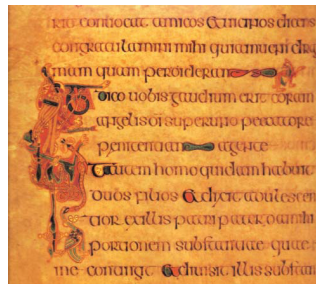 conuocat amicos & uicinos dicens
congratulamini mihi quia inueni
mam quam perdideram
Dico uobis gaudium erit coram
angelis di super uno peccatore
penitentiam agente
Autem homo quidam habuit
duos filios & dixit adulescen
tior ex illis patri pater da mihi
portionem substantiae quae
me contingit & diuisit illis substan